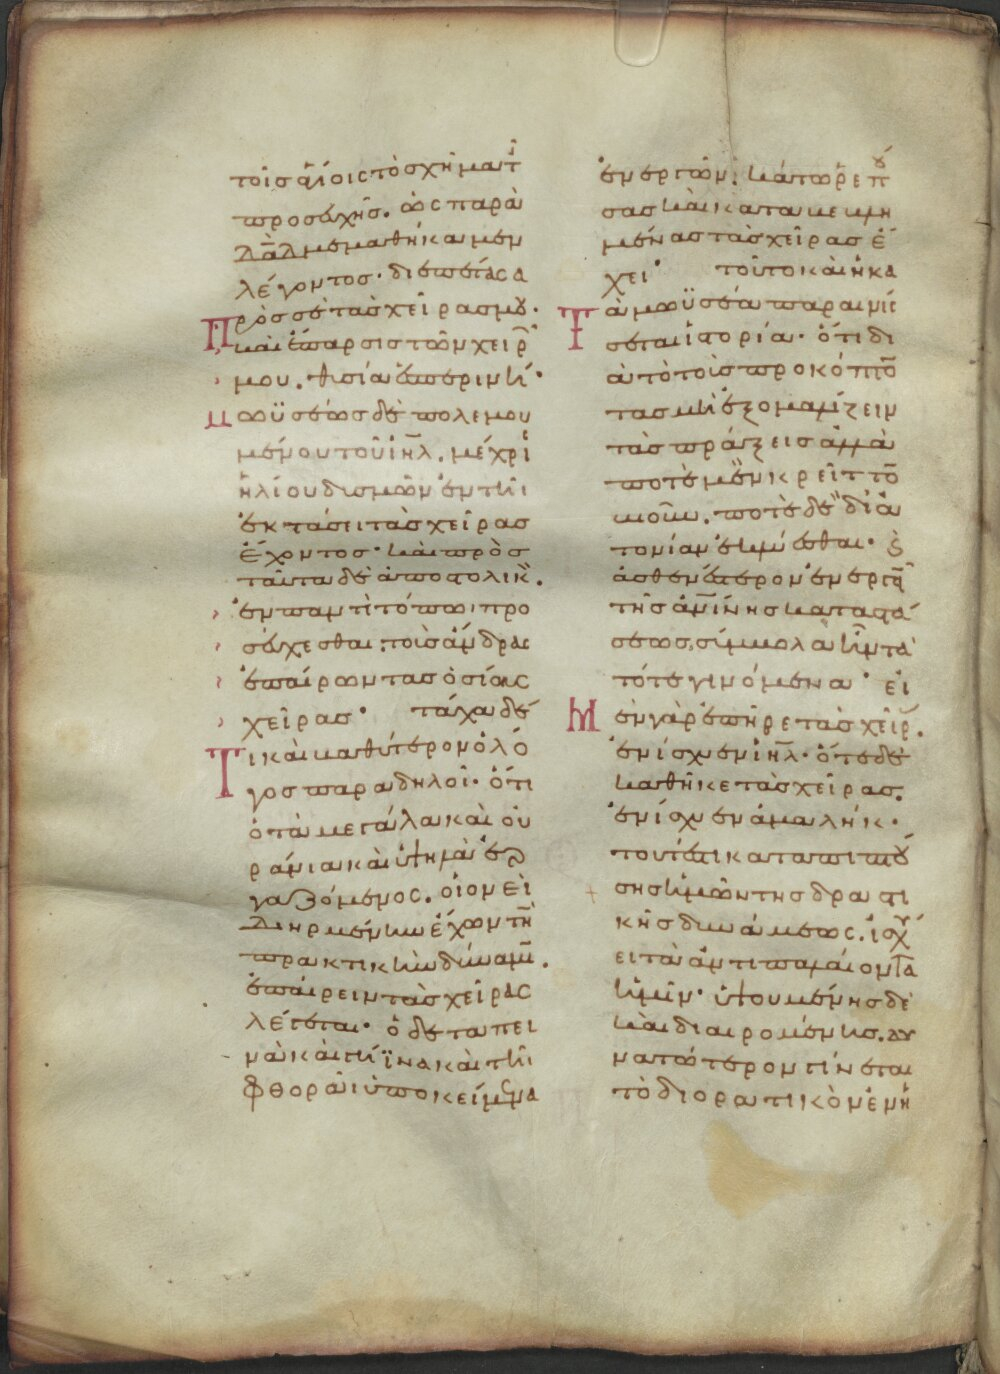 τοῖς ἁγίοις τὸ σχῆμα τ(ῆς)
προσευχῆς. ὡς παρὰ
δᾱδ μεμαθήκαμεν
λέγοντος· διεπέτασα
πρὸς σὲ τὰς χεῖράς μου·
καὶ ἔπαρσις τῶν χειρῶ
μου. θυσία ἑσπερινή·
μωϋσέως δὲ πολεμου
μένου τοῦ ἰη̄λ. μέχρι
ἡλίου δυσμῶν ἐν τῆι
ἐκτάσει τὰς χεῖρας
ἔχοντος· καὶ πρὸς
ταῦτα δὲ ἀποστολικ(ῶς).
ἐν παντὶ τόπωι προ
σεύχεσθαι τοὺς ἄνδρας
ἐπαίροντας ὁσίους
χεῖρας· τάχα δέ
τι καὶ καθ' ὕστερον ὁ λό
γος παραδηλοῖ· ὅτι
ὁ τὰ μεγάλα καὶ οὐ
ράνια καὶ ὑψηλὰ ἐρ
γαζόμενος. οἷον εἰ
διηρμένην ἔχων τὴν
πρακτικὴν δύναμιν.
ἐπαίρειν τὰς χεῖρας
λέγεται· ὁ δὲ ταπει
νὰ καὶ γήϊνα καὶ τῆι
φθορᾶι ὑποκείμενα
ἐνεργῶν. κάτω ῥεπού
σας καὶ κατακεκλι
μένας τὰς χεῖρας ἔ
χει· τοῦτο καὶ ἡ κα
τὰ μωϋσέα παραινίτ
τεται ἱστορία· ὅτι δι
ὰ τὸ τοὺς προκόπτον
τας μὴ ἐξομαλίζειν
τὰς πράξεις ἀλλὰ
ποτὲ μὲν κρεῖττον
κινεῖν. ποτὲ δὲ δι' ἀ
τονίαν ἐκλύεσθαι· καὶ
ἀσθενέστερον ἐνεργεῖν
τῆς ἀμείνης καταστά
σεως, σύμβολα ἦν τὰ
τότε γινόμενα· εἰ
μὲν γὰρ ἐπῆρε τὰς χεῖρ(ας).
ἐνίσχυεν ἰη̄λ· ὅτε δὲ
καθῆκε τὰς χεῖρας.
ἐνίσχυεν ἀμαλήκ·
τουτέστι καταπιπτού
σης ἡμῶν τῆς δραστι
κῆς δυνάμεως. ἰσχύ
ει τὰ ἀντιπαλαίοντα
ἡμῖν· ὑψουμένης δὲ
καὶ διαιρομένης. δυ
νατώτερον γίνεται
τὸ διορατικὸν ἐν ἡ